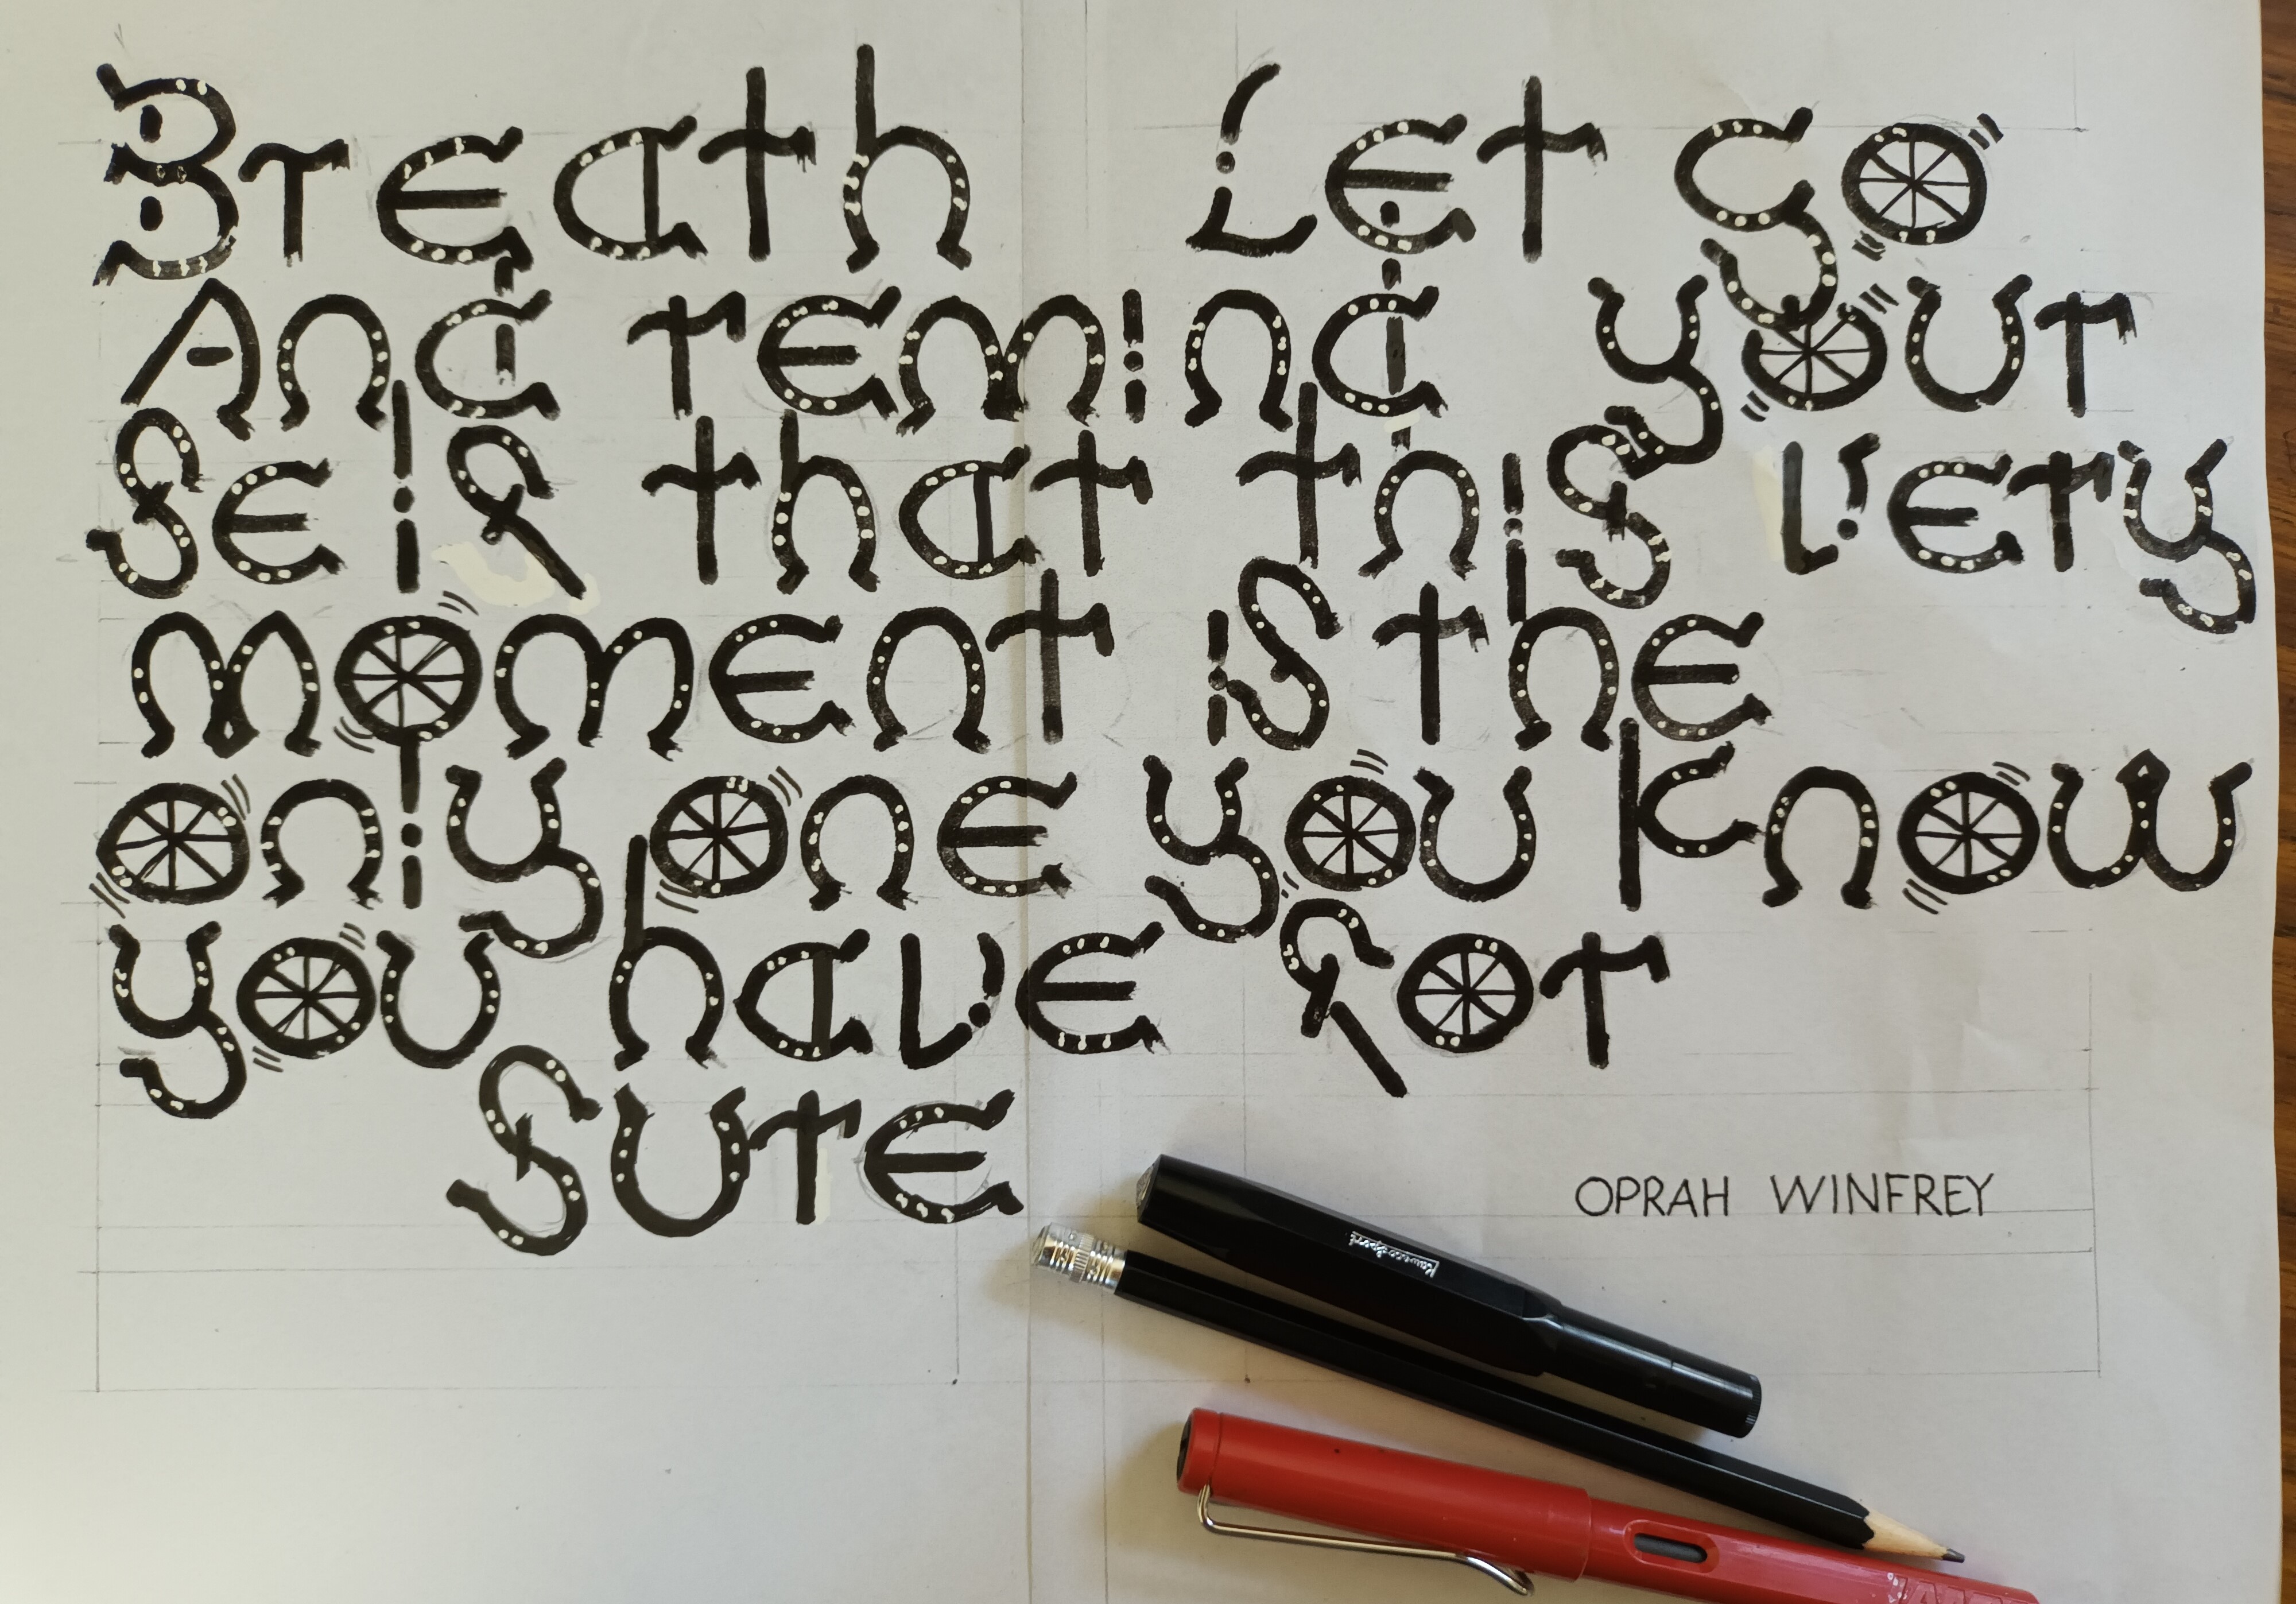 Breath Let go
And remind your
self that this very
moment is the
only one you know
you have for
sure
OPRAH WINFREY
Kaweco Sport